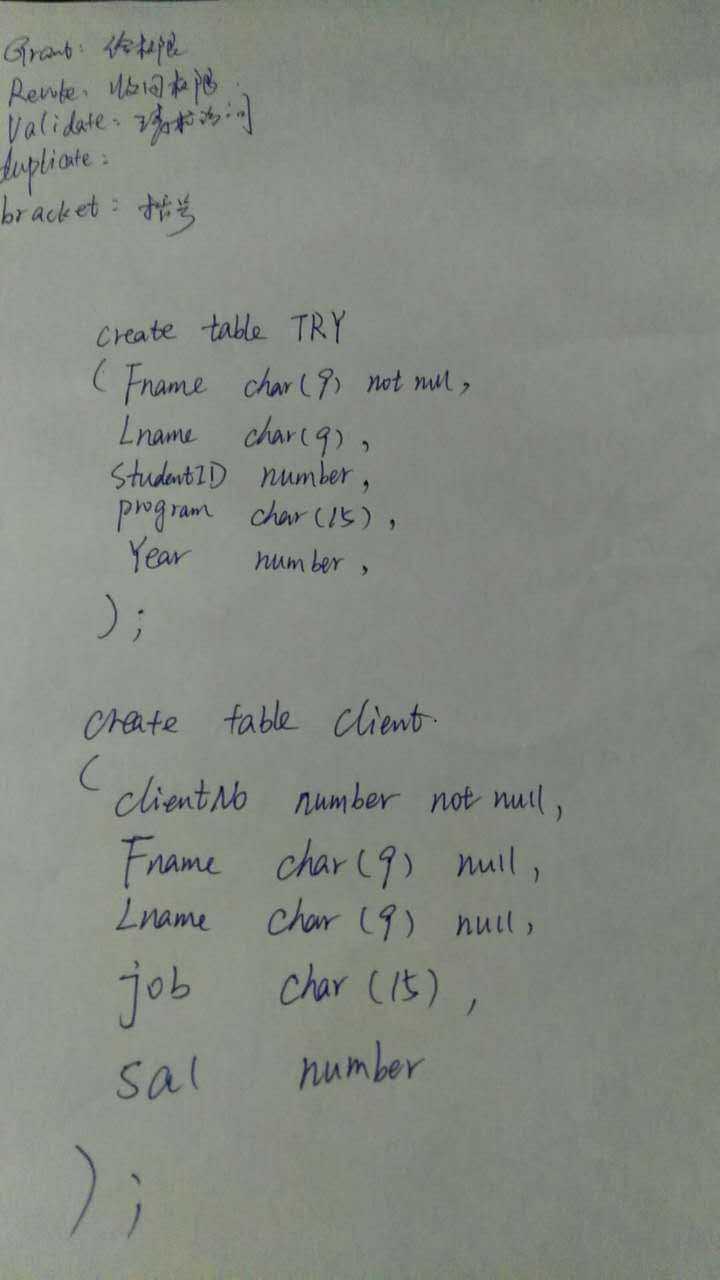 Grant: 给权限
Revoke: 收回权限.
Validate:
duplicate:
bracket: 括号
create table TRY
( Fname char(9) not null,
Lname char(9),
StudentID number,
program char(15),
Year number,
);
create table client.
(
clientNo number not null,
Fname char(9) null,
Lname char(9) null,
job char(15),
sal number
);